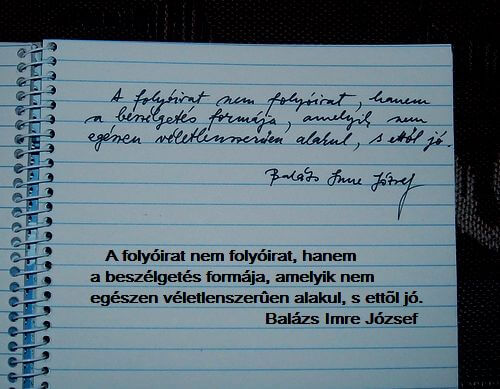 A folyóirat nem folyóirat, hanem
a beszélgetés formája, amelyik nem
egészen véletlenszerűen alakul, s ettől jó.
Balázs Imre József
A folyóirat nem folyóirat, hanem
a beszélgetés formája, amelyik nem
egészen véletlenszerûen alakul, s ettõl jó.
Balázs Imre József